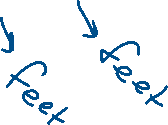 feet
feet